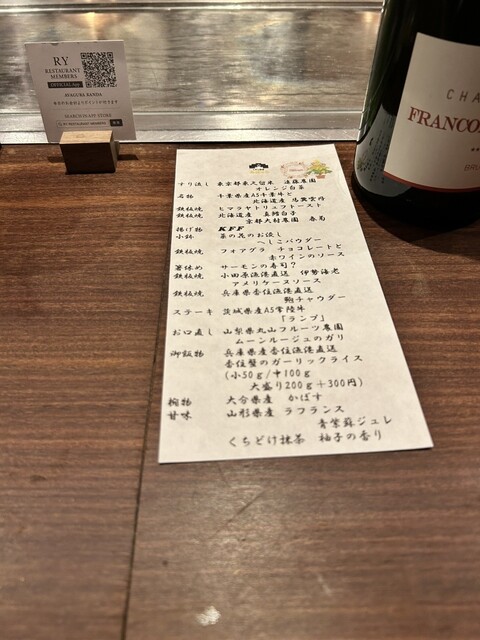 RY
RESTAURANT
MEMBERS
OFFICIAL App
AYAGURA BANDA
SEARCH IN APP STORE
RY RESTAURANT MEMBERS
CHA
FRANCO
BR
すり流し 東京都東久留米 遠藤農園
オレンジ白菜
名物 千葉県産A5千葉牛と
北海道産 馬糞雲丹
鉄板焼 ヒマラヤトリュフトースト
鉄板焼 北海道産 真鱈白子
京都大村農園 春菊
揚げ物 KFF
小鉢 菜の花のお浸し
へしこパウダー
鉄板焼 フォアグラ チョコレートと
赤ワインのソース
箸休め サーモンの寿司?
鉄板焼 小田原漁港直送 伊勢海老
アメリケーヌソース
鉄板焼 兵庫県香住漁港直送
鮑チャウダー
ステーキ 茨城県産A5常陸牛
「ランプ」
お口直し 山梨県丸山フルーツ農園
ムーンルージュのガリ
御飯物 兵庫県産香住漁港直送
香住蟹のガーリックライス
(小50g/中100g
大盛り200g+300円)
椀物 大分県産 かぼす
甘味 山形県産 ラフランス
青紫蘇ジュレ
くちどけ抹茶 柚子の香り